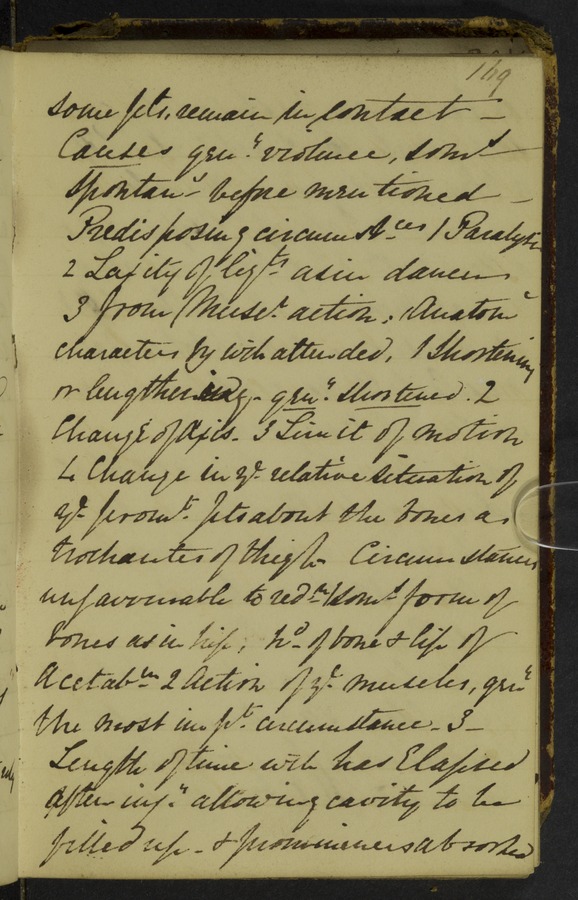 169
some pts. remain in contact -
Causes gen.y violence, somt
spontans before mentioned -
Predisposing circumstces 1 Paralytic
2 Laxity of ligts as in dancers
3 from Muscr action. Anatoml
characters by wch attended, 1 Shortening
or lengthening - geny shortened. 2
Change of Axis. 3 Limit of motion
4 Change in ye relative situation of
ye promt pts about the bones as
trochanter of thigh - Circumstances
unfavourable to redn 1 somt form of
bones as in hip, hd of bone & lip of
Acetabm 2 Action of ye muscles, geny
the most impt circumstance - 3 -
Length of time wch has Elapsed
after injy allowing cavity to be
filled up - & prominences absorbed